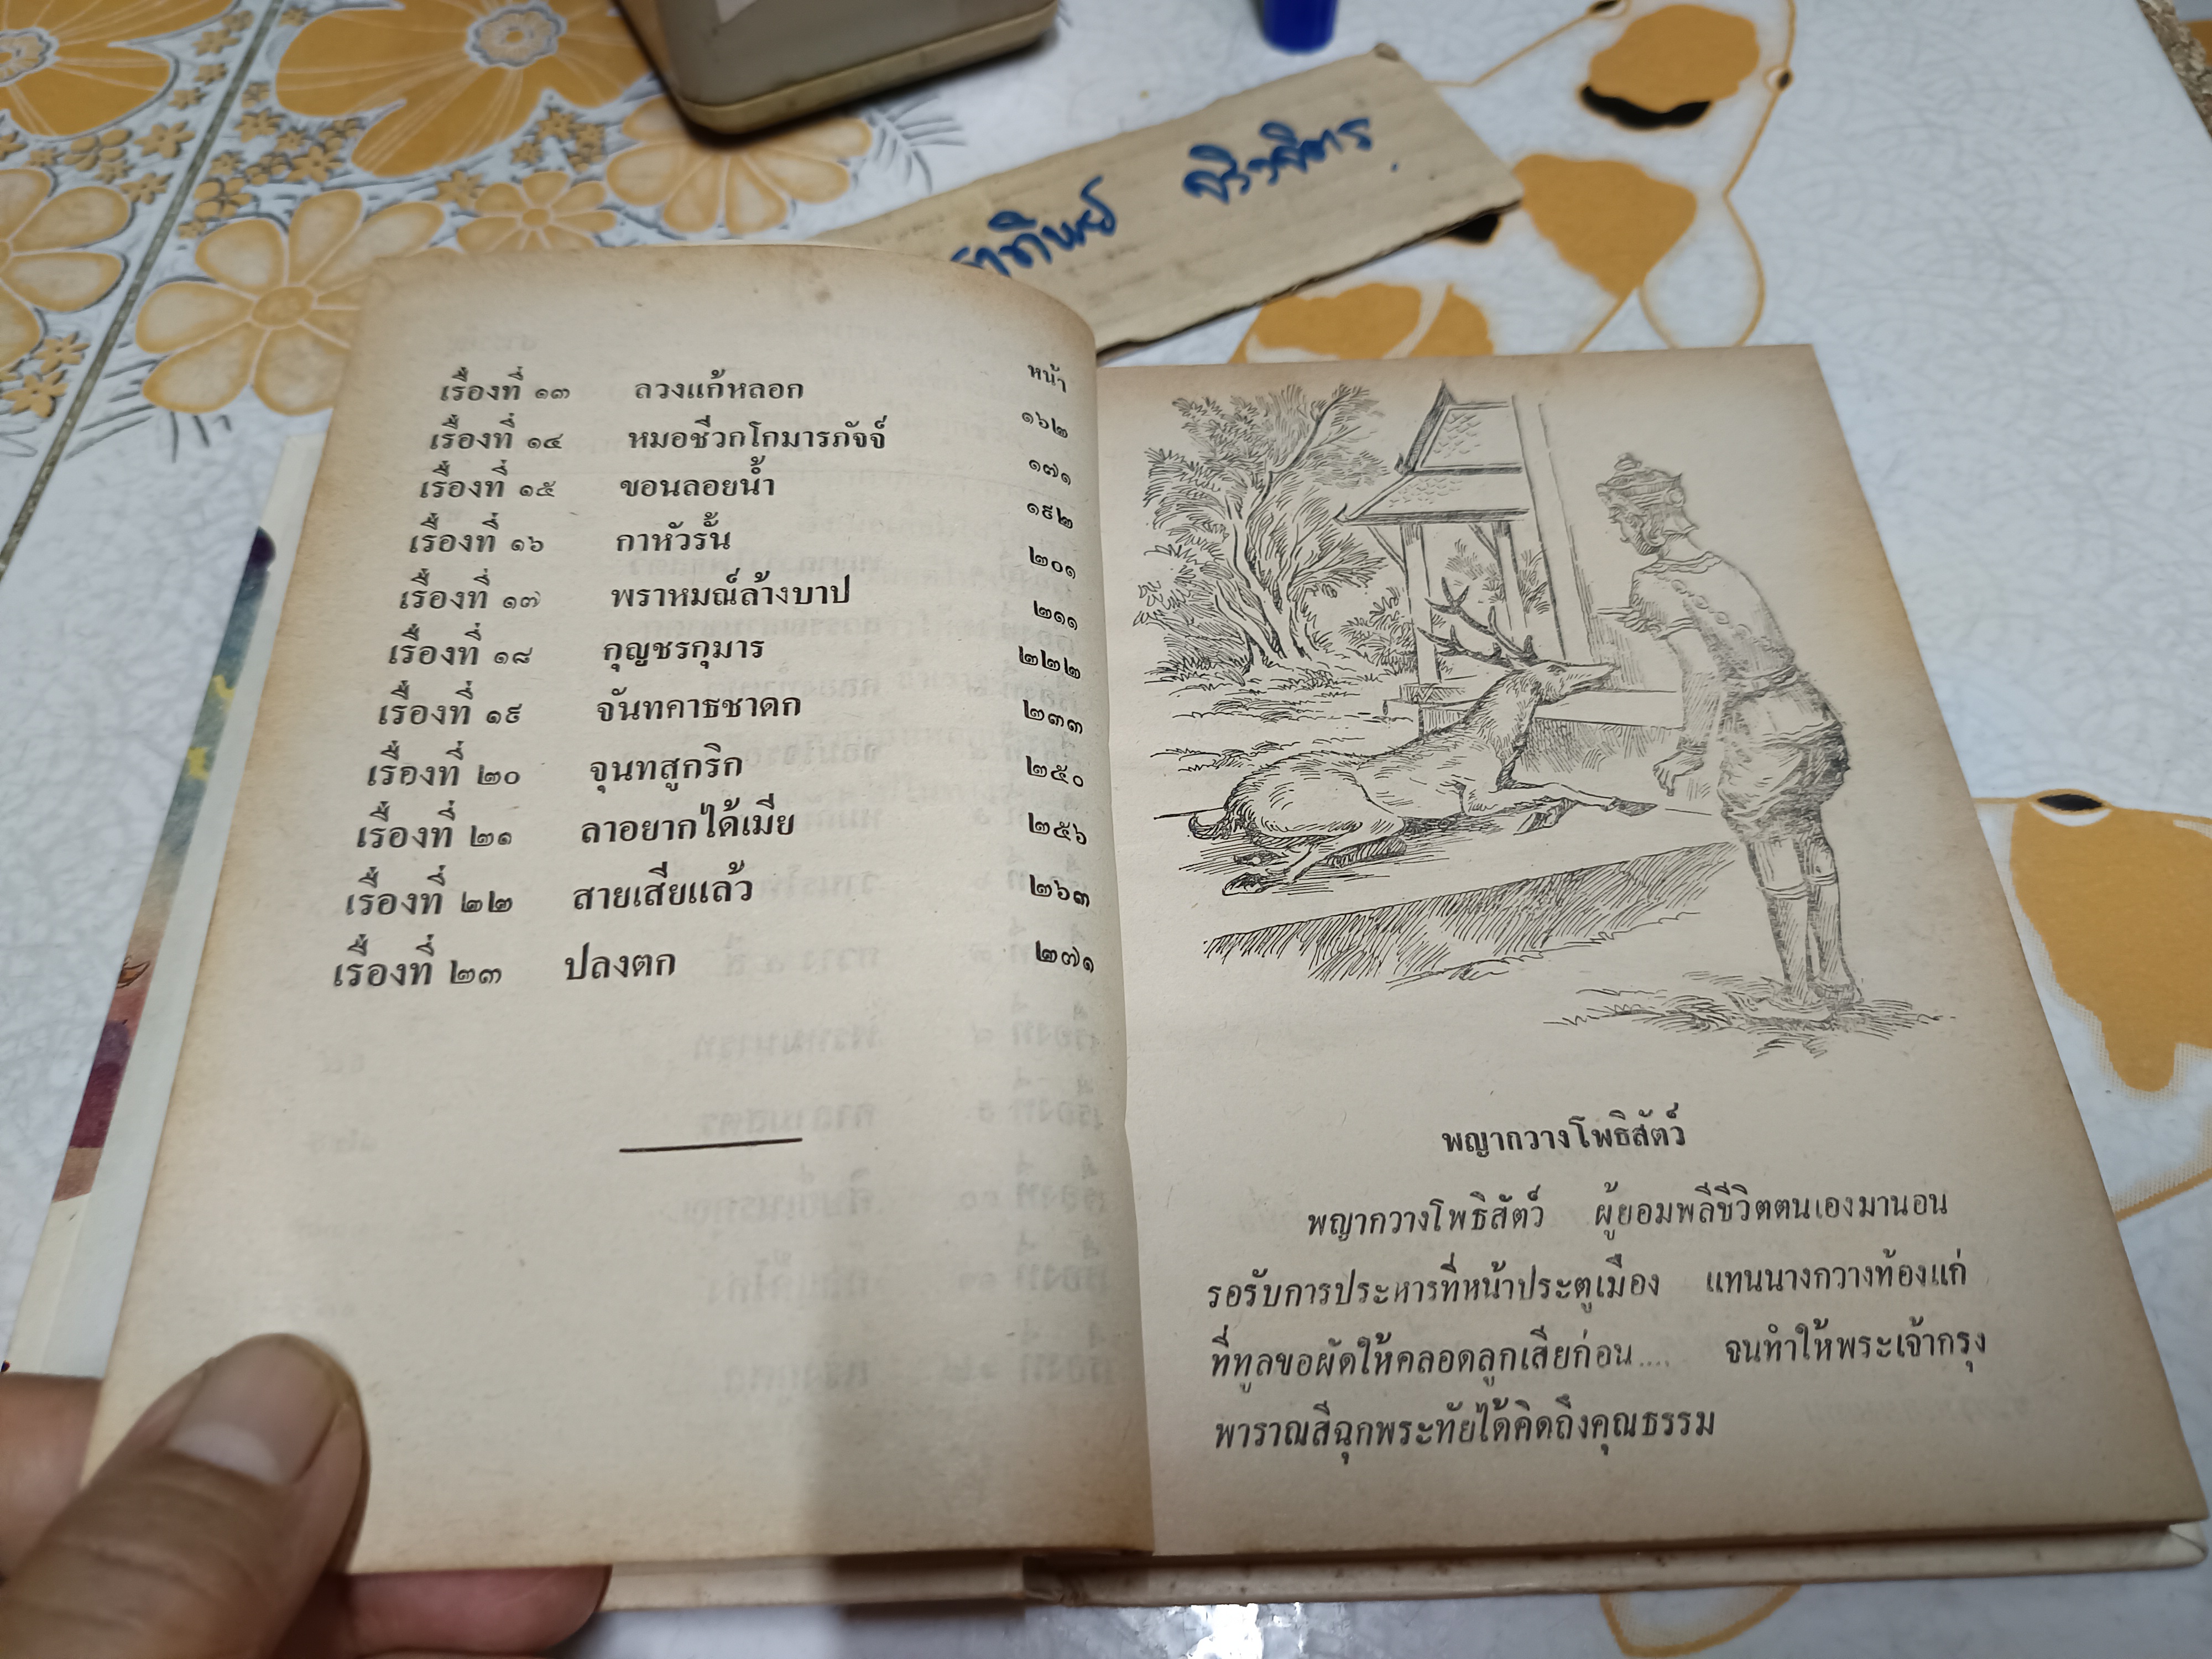 หน้า
เรื่องที่ ๑๓ ลวงแก้หลอก ๑๖๒
เรื่องที่ ๑๔ หมอชีวกโกมารภัจจ์ ๑๗๑
เรื่องที่ ๑๕ ขอนลอยน้ำ ๑๙๒
เรื่องที่ ๑๖ กาหัวรั้น ๒๐๑
เรื่องที่ ๑๗ พราหมณ์ล้างบาป ๒๑๑
เรื่องที่ ๑๘ กุญชรกุมาร ๒๒๒
เรื่องที่ ๑๙ จันทคาธชาดก ๒๓๓
เรื่องที่ ๒๐ จุนทสูกริก ๒๕๐
เรื่องที่ ๒๑ ลาอยากได้เมีย ๒๕๖
เรื่องที่ ๒๒ สายเสียแล้ว ๒๖๓
เรื่องที่ ๒๓ ปลงตก ๒๗๑
พญากวางโพธิสัตว์
พญากวางโพธิสัตว์ ผู้ยอมพลีชีวิตตนเองมานอน
รอรับการประหารที่หน้าประตูเมือง แทนนางกวางท้องแก่
ที่ทูลขอผัดให้คลอดลูกเสียก่อน.... จนทำให้พระเจ้ากรุง
พาราณสีฉุกพระทัยได้คิดถึงคุณธรรม